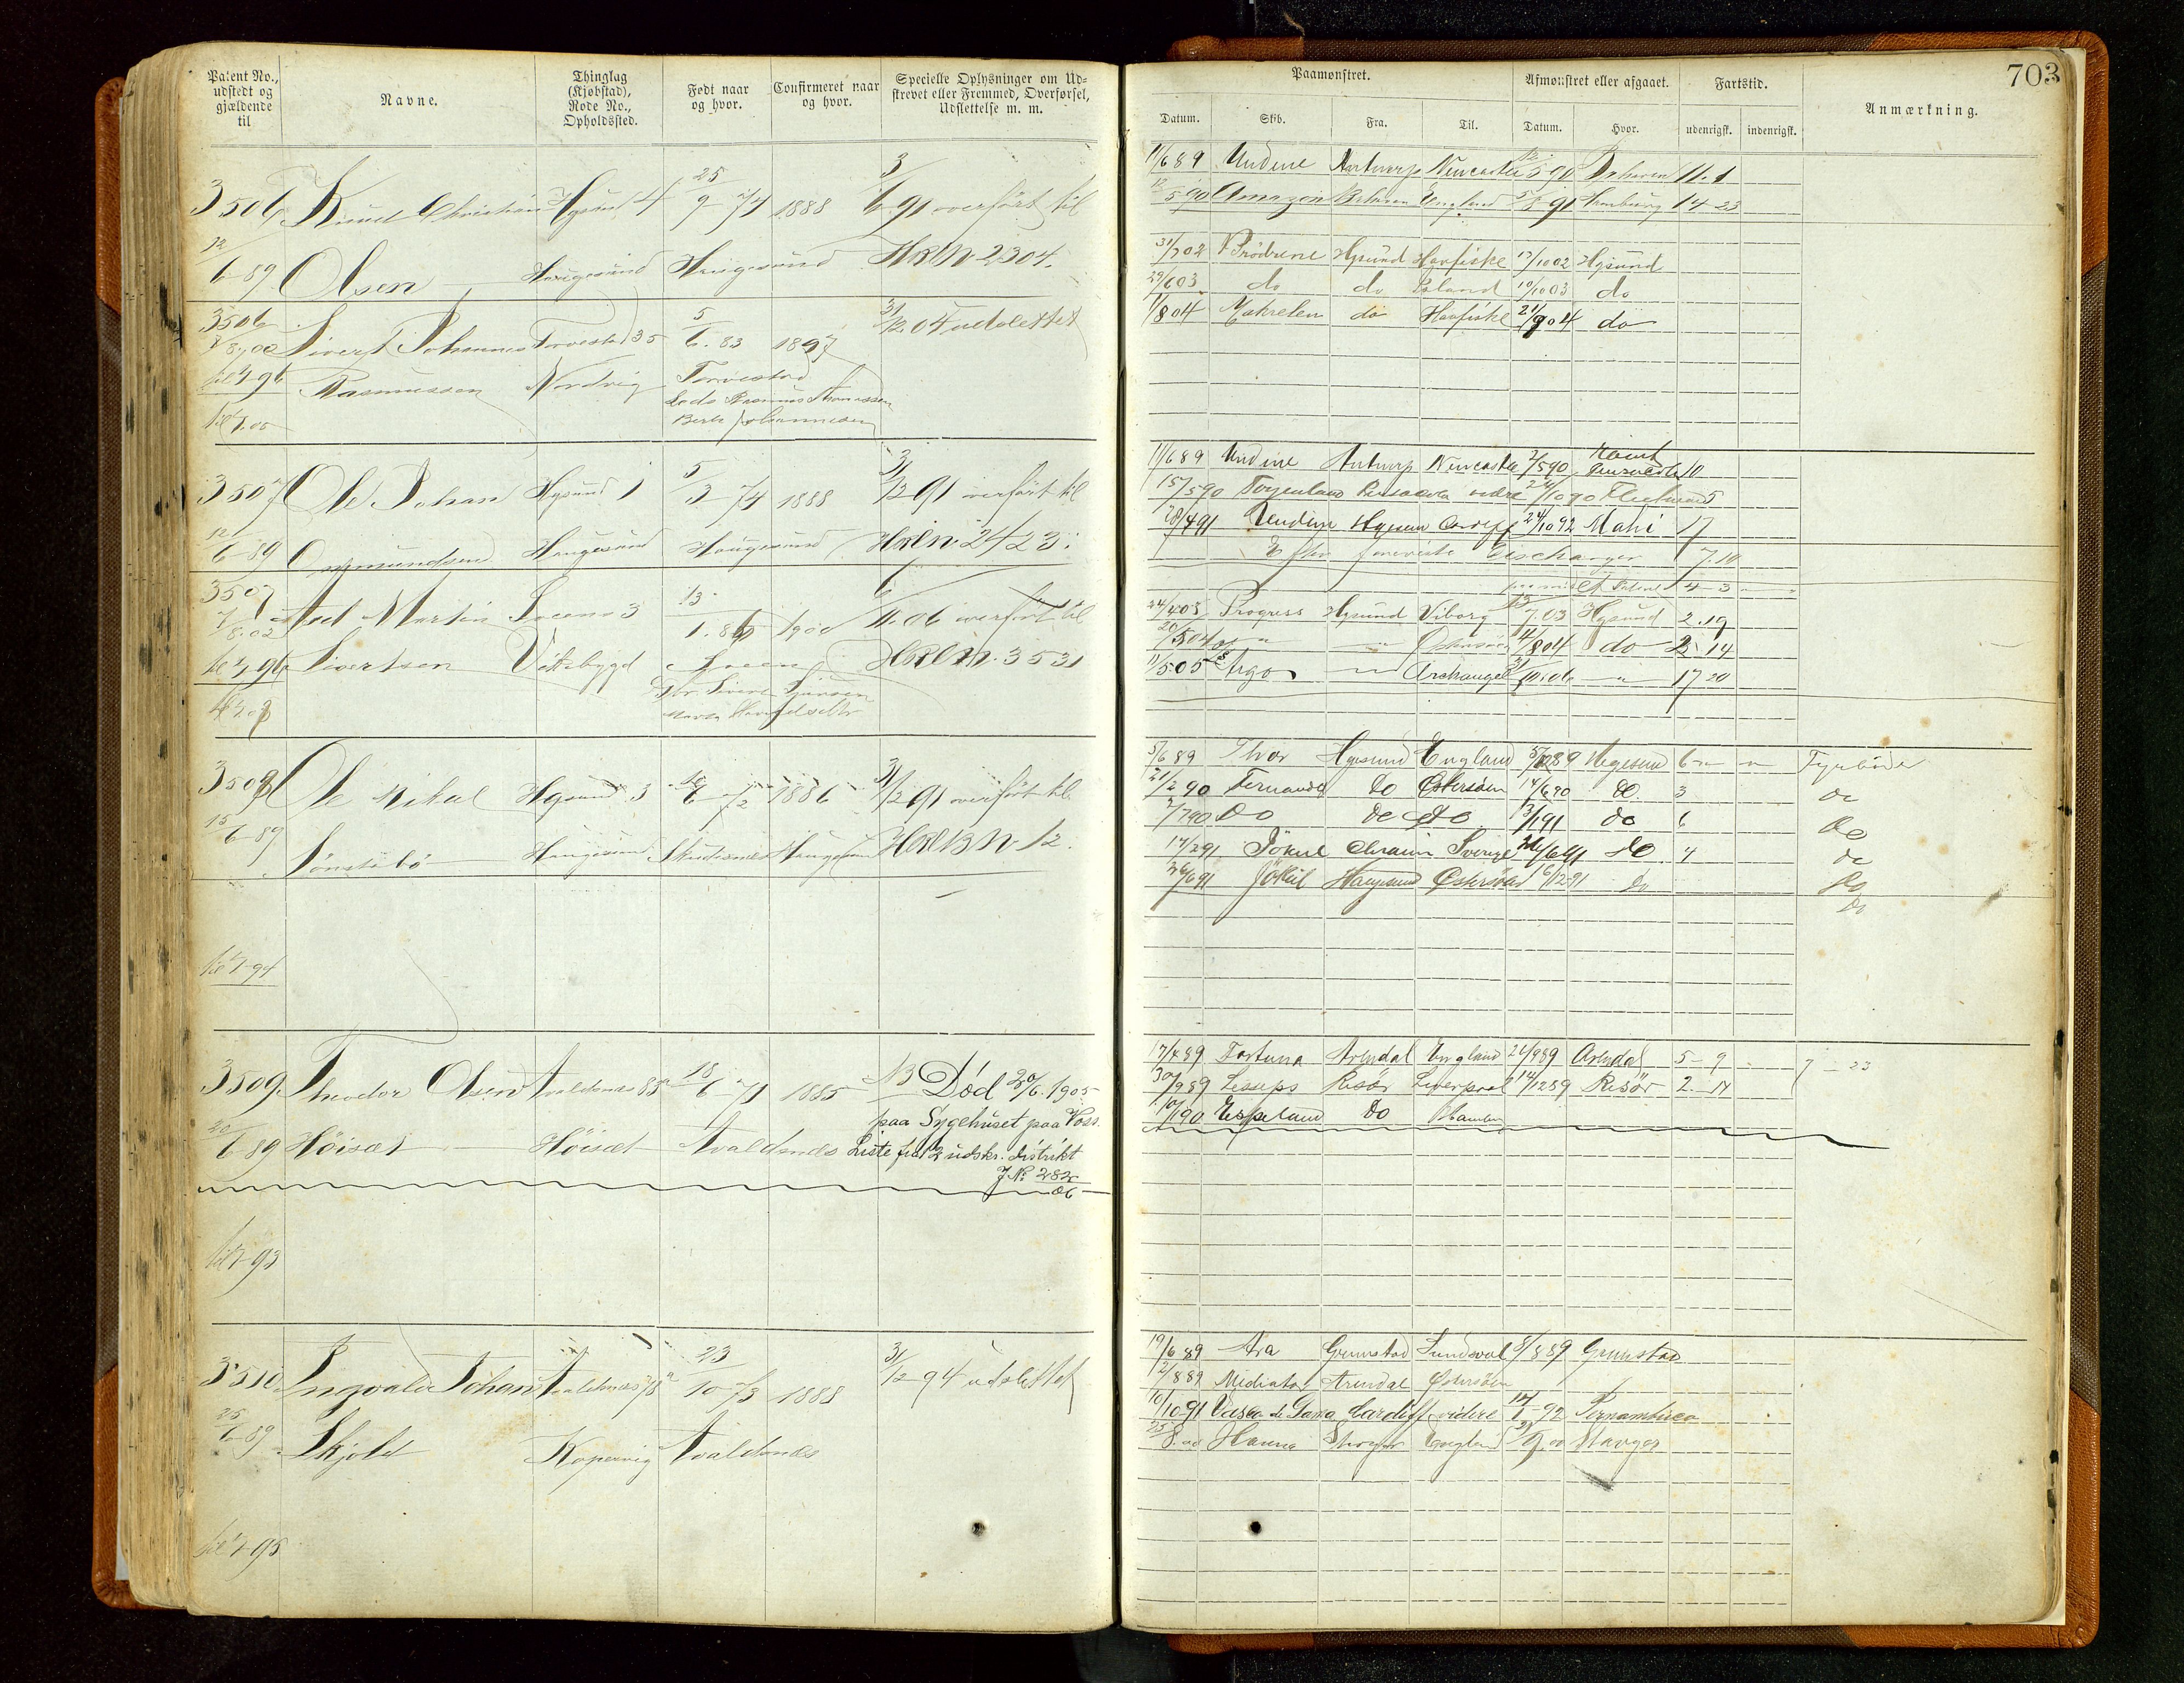 Patent No., udstedt og gjældende til
Navne.
Thinglag (Kjøbstad), Rode No., Opholdssted.
Født naar og hvor.
Confirmeret naar og hvor.
Specielle Oplysninger om Udskrevet eller Fremmed, Overførsel, Udslettelse m. m.
3506 Knud Christian Hgsund 4 25/9 74 1888 3/6 91 overført til
12/6-89 Olsen Haugesund Haugesund HRL No 2304.
3506 Sivert Johannes Torvestad 35 5/6. 83 1897 31/12 04 udslettet
8.02
til 96 Rasmussen Nordvig Torvestad
Rasmus
til 1.05 Johannesen
3507 Ole Johan Hgsund 1 5/3-74 1888 31/12 91 overført til
12/6-89 Osmundsen Haugesund Haugesund HRL No 2423.
3507 Martin 3 13/1. 1900 11.06 overført til
8.02
Sivertsen Vikebygd HRL No. 3531
3508 Ole Mikal Hgsund 3 6-72 1886 31/12 91 overført til
15/6-89 Sønstebø Haugesund Skudesnes Haugesund HRL B No 12.
til 1-94
3509 Theodor Olsen Avaldsnes 85 18/6-71 1885 Død 20/6.1905
paa Sygehuset paa Voss.
20/6 89 Høiset Høiset Avaldsnes Liste fra 2 udskr. distrikt
J No 282/06
til 1-93
3510 Ingvald Johan Avaldsnes 78 23/10 73 1888 31/12-94 udslettet
25/6-89 Skjold Kopervig Avaldsnes
til 1-95
703
Paamønstret.
Afmønstret eller afgaaet.
Fartstid.
Anmærkning.
Datum. Skib. Fra. Til. Datum. Hvor. udenrigsk. indenrigsk.
11/6 89 Undine Antwerp Newcastle 12/5 90 Brhaven 11.1
12/5 90 Amazon Brhaven England 5/8 91 Hamburg 14 23
31/7 02 Brødrene Hgsund Havfiske 17/10 02 Hgsund
29/6 03 do do Island 10/10 03 do
1/8 04 Makrelen do Havfiske 21/9 04 do
11/6 89 Undine Antwerp Newcastle 2/5 90 Rømt Pensacola 10
15/5 90 Pensacola videre 24/10 90 5
28/4 91 Undine Hgsund Cardiff 24/10 92 17
Discharger 7.10
4-3
24/4 03 Progress Hgsund Viborg 13/7.03 Hgsund 2.19
20/5 04 " " Østersøen 4/8 04 do 2 14
11/5 05 Argo " Archangel " 17 20
5/6 89 Thor Hgsund England 89 Hgesund 6 " " Fyrbøder
21/2 90 Fernanda do Østersøen 14/6 90 do. 3 do
2/7 90 Do Do Do 13/1 91 do 6 Do
17/2 91 Jøkul Sverige 24/6 91 do 4 do
26/6 91 Jøkul Haugesund Østersøen 6/12 91 do Do
Do
17/4 89 Fortuna Arendal England 26/9 89 Arendal 5-9 - 7-23
30/9 89 Lesseps Risør Liverpool 14/12 89 Risør 2-14
10/1 90 Espeland Do
19/6 89 Ara Grimstad Sundsval 8/8 89 Grimstad
12/8 89 Mediator Arendal Østersøen
10/10 91 Vasco de Gama Cardiff videre 14/1-92 Pernambuco
25/8.00 Hanna England 9.00 Stavger